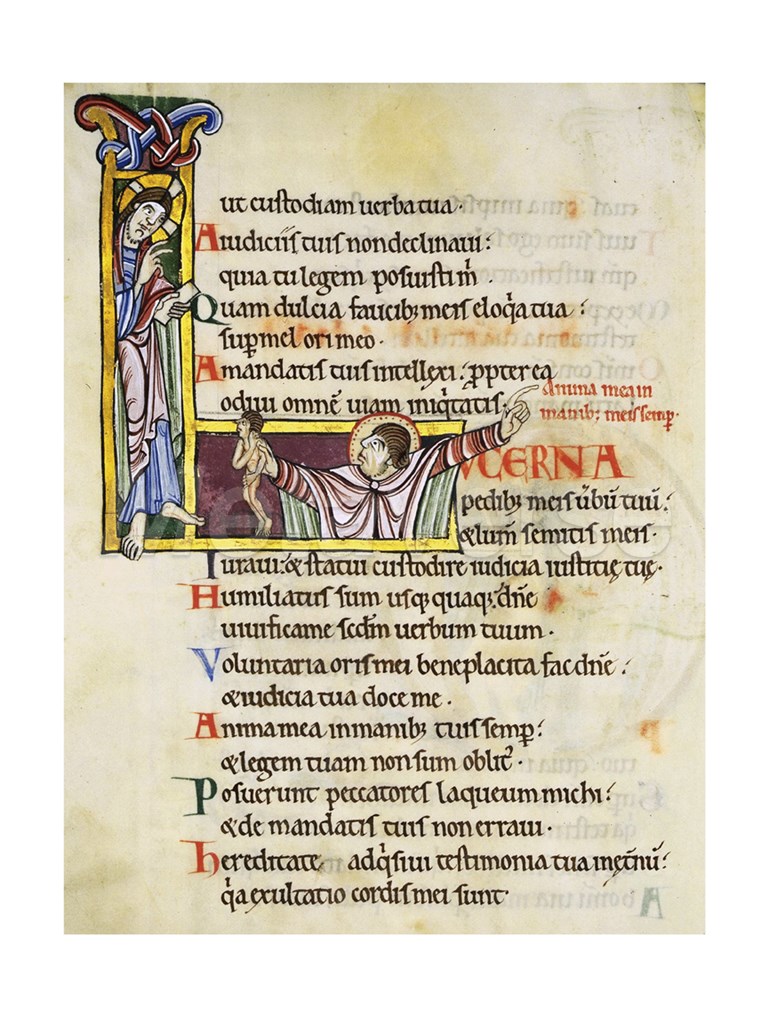 ut custodiam uerba tua.
A iudiciis tuis non declinaui:
quia tu legem posuisti m̄.
Quam dulcia faucibꝫ meis eloq̄a tua:
sup̄ mel ori meo.
A mandatis tuis intellexi: ꝓpterea
odiui omnē uiam iniq̄tatis.
Anima mea in
manibꝫ meis semp̄.
LUCERNA
pedibꝫ meis ūbū tuū:
& lum̄ semitis meis.
Iuraui: & statui custodire iudicia iustitię tuę.
Humiliatus sum usqꝫ quaqꝫ: dn̄e
uiuifica me scd̄m uerbum tuum.
Voluntaria oris mei beneplacita fac dn̄e:
& iudicia tua doce me.
Anima mea in manibꝫ tuis semp̄:
& legem tuam non sum oblit᾿.
Posuerunt peccatores laqueum michi:
& de mandatis tuis non erraui.
Hereditate adq̄siui testimonia tua inet̄nū:
q̄a exultatio cordis mei sunt.